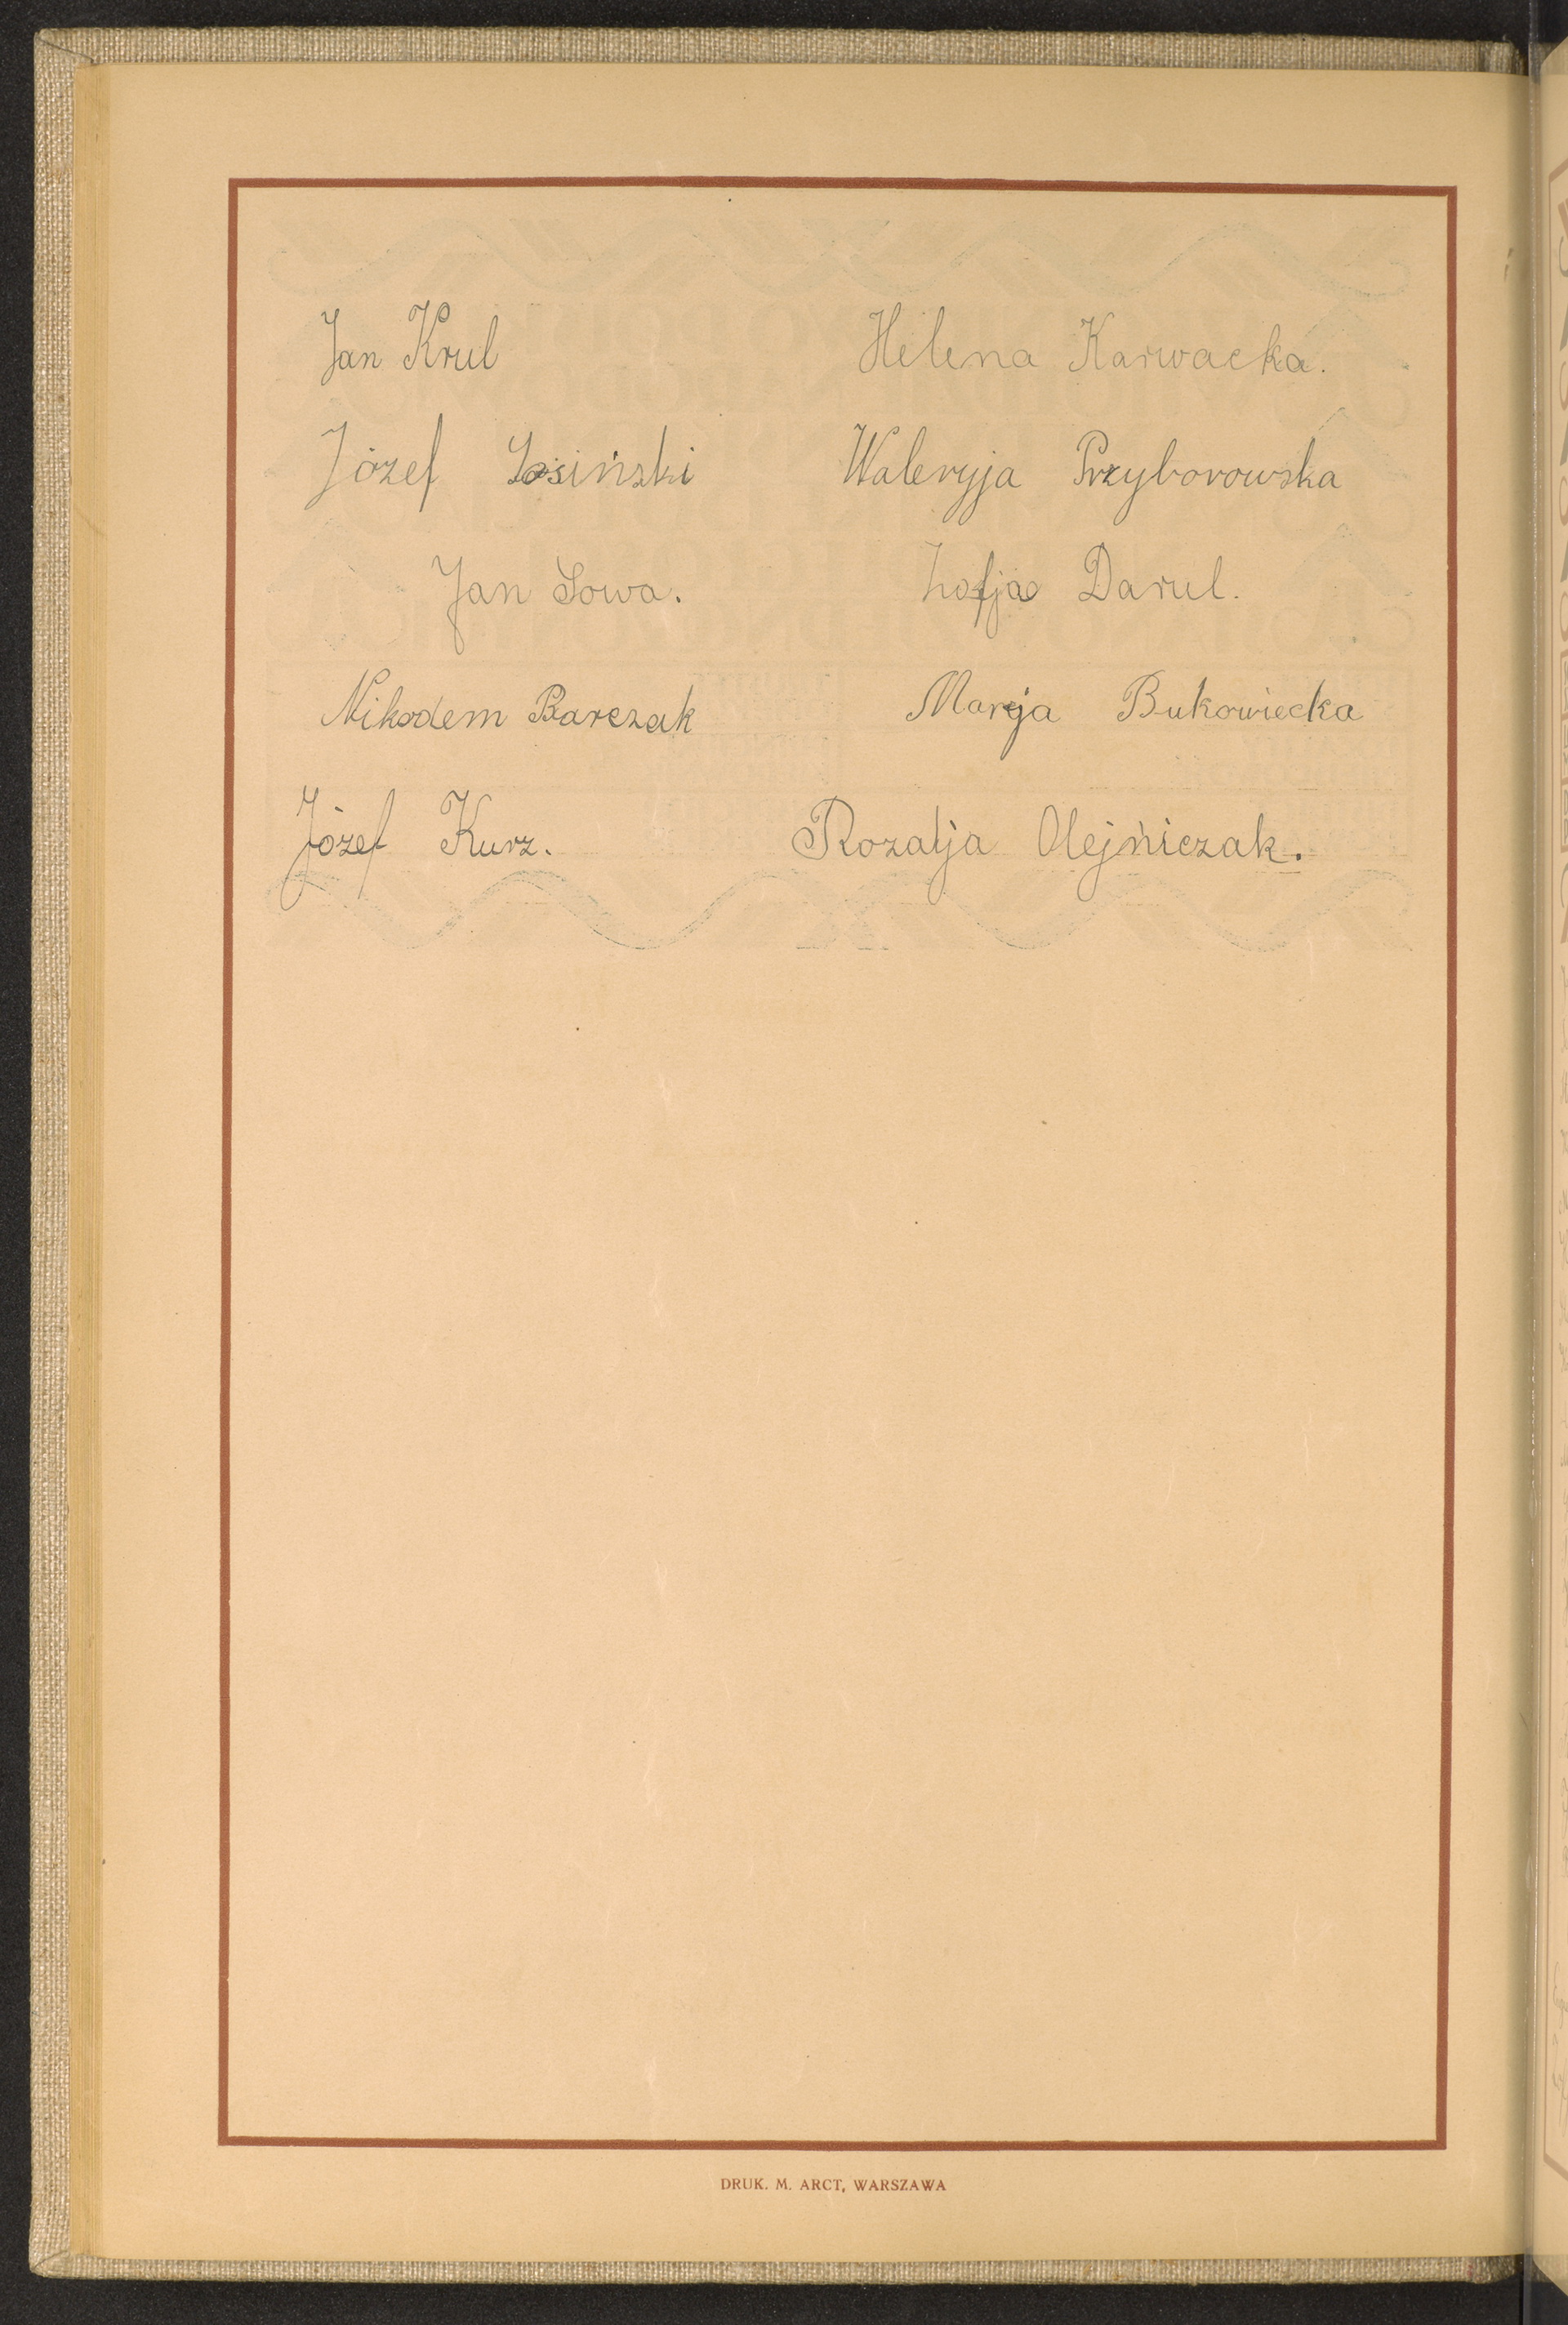 Jan Krul
Józef Łosiński
Jan Sowa.
Nikodem Barczak
Józef Kurz.
Helena Karwacka.
Waleryja Przyborowska
Zofja Darul.
Marja Bukowiecka
Rozalja Olejniczak.
DRUK. M. ARCT, WARSZAWA